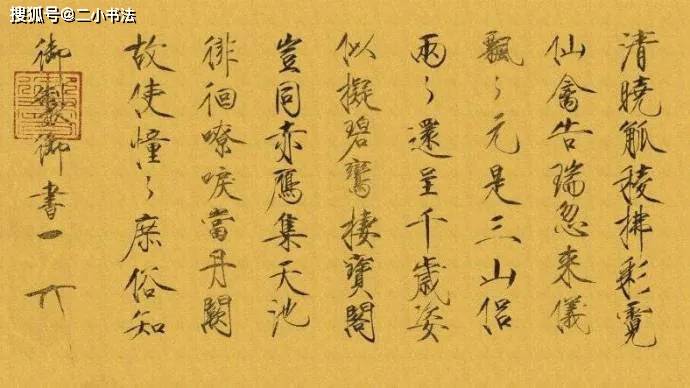 搜狐号@二小书法
清曉觚稜拂彩霓
仙禽告瑞忽來儀
飄〻元是三山侶
兩〻還呈千歲姿
似擬碧鸞棲寶閣
豈同赤鴈集天池
徘徊嘹唳當丹闕
故使憧〻庶俗知
御製御書